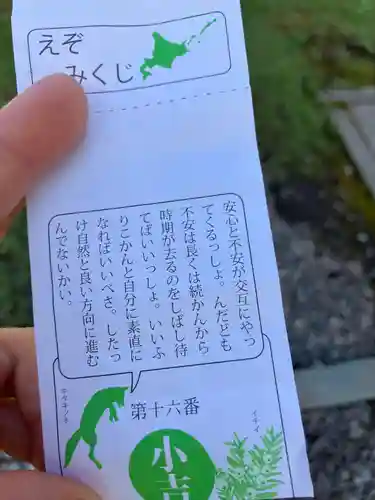 えぞ
みくじ
安心と不安が交互にやっ
てくるっしょ。んだども
不安は長くは続かんから
時期が去るのをしばし待
てばいいっしょ。いいふ
りこかんと自分に素直に
なればいいべさ。したっ
け自然と良い方向に進む
んでないかい。
キタキツネ
第十六番
イチイ
小吉